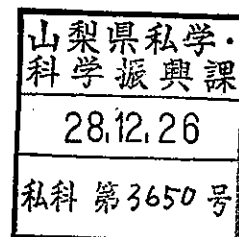 山梨県私学・
科学振興課
28.12.26
私科 第3650号